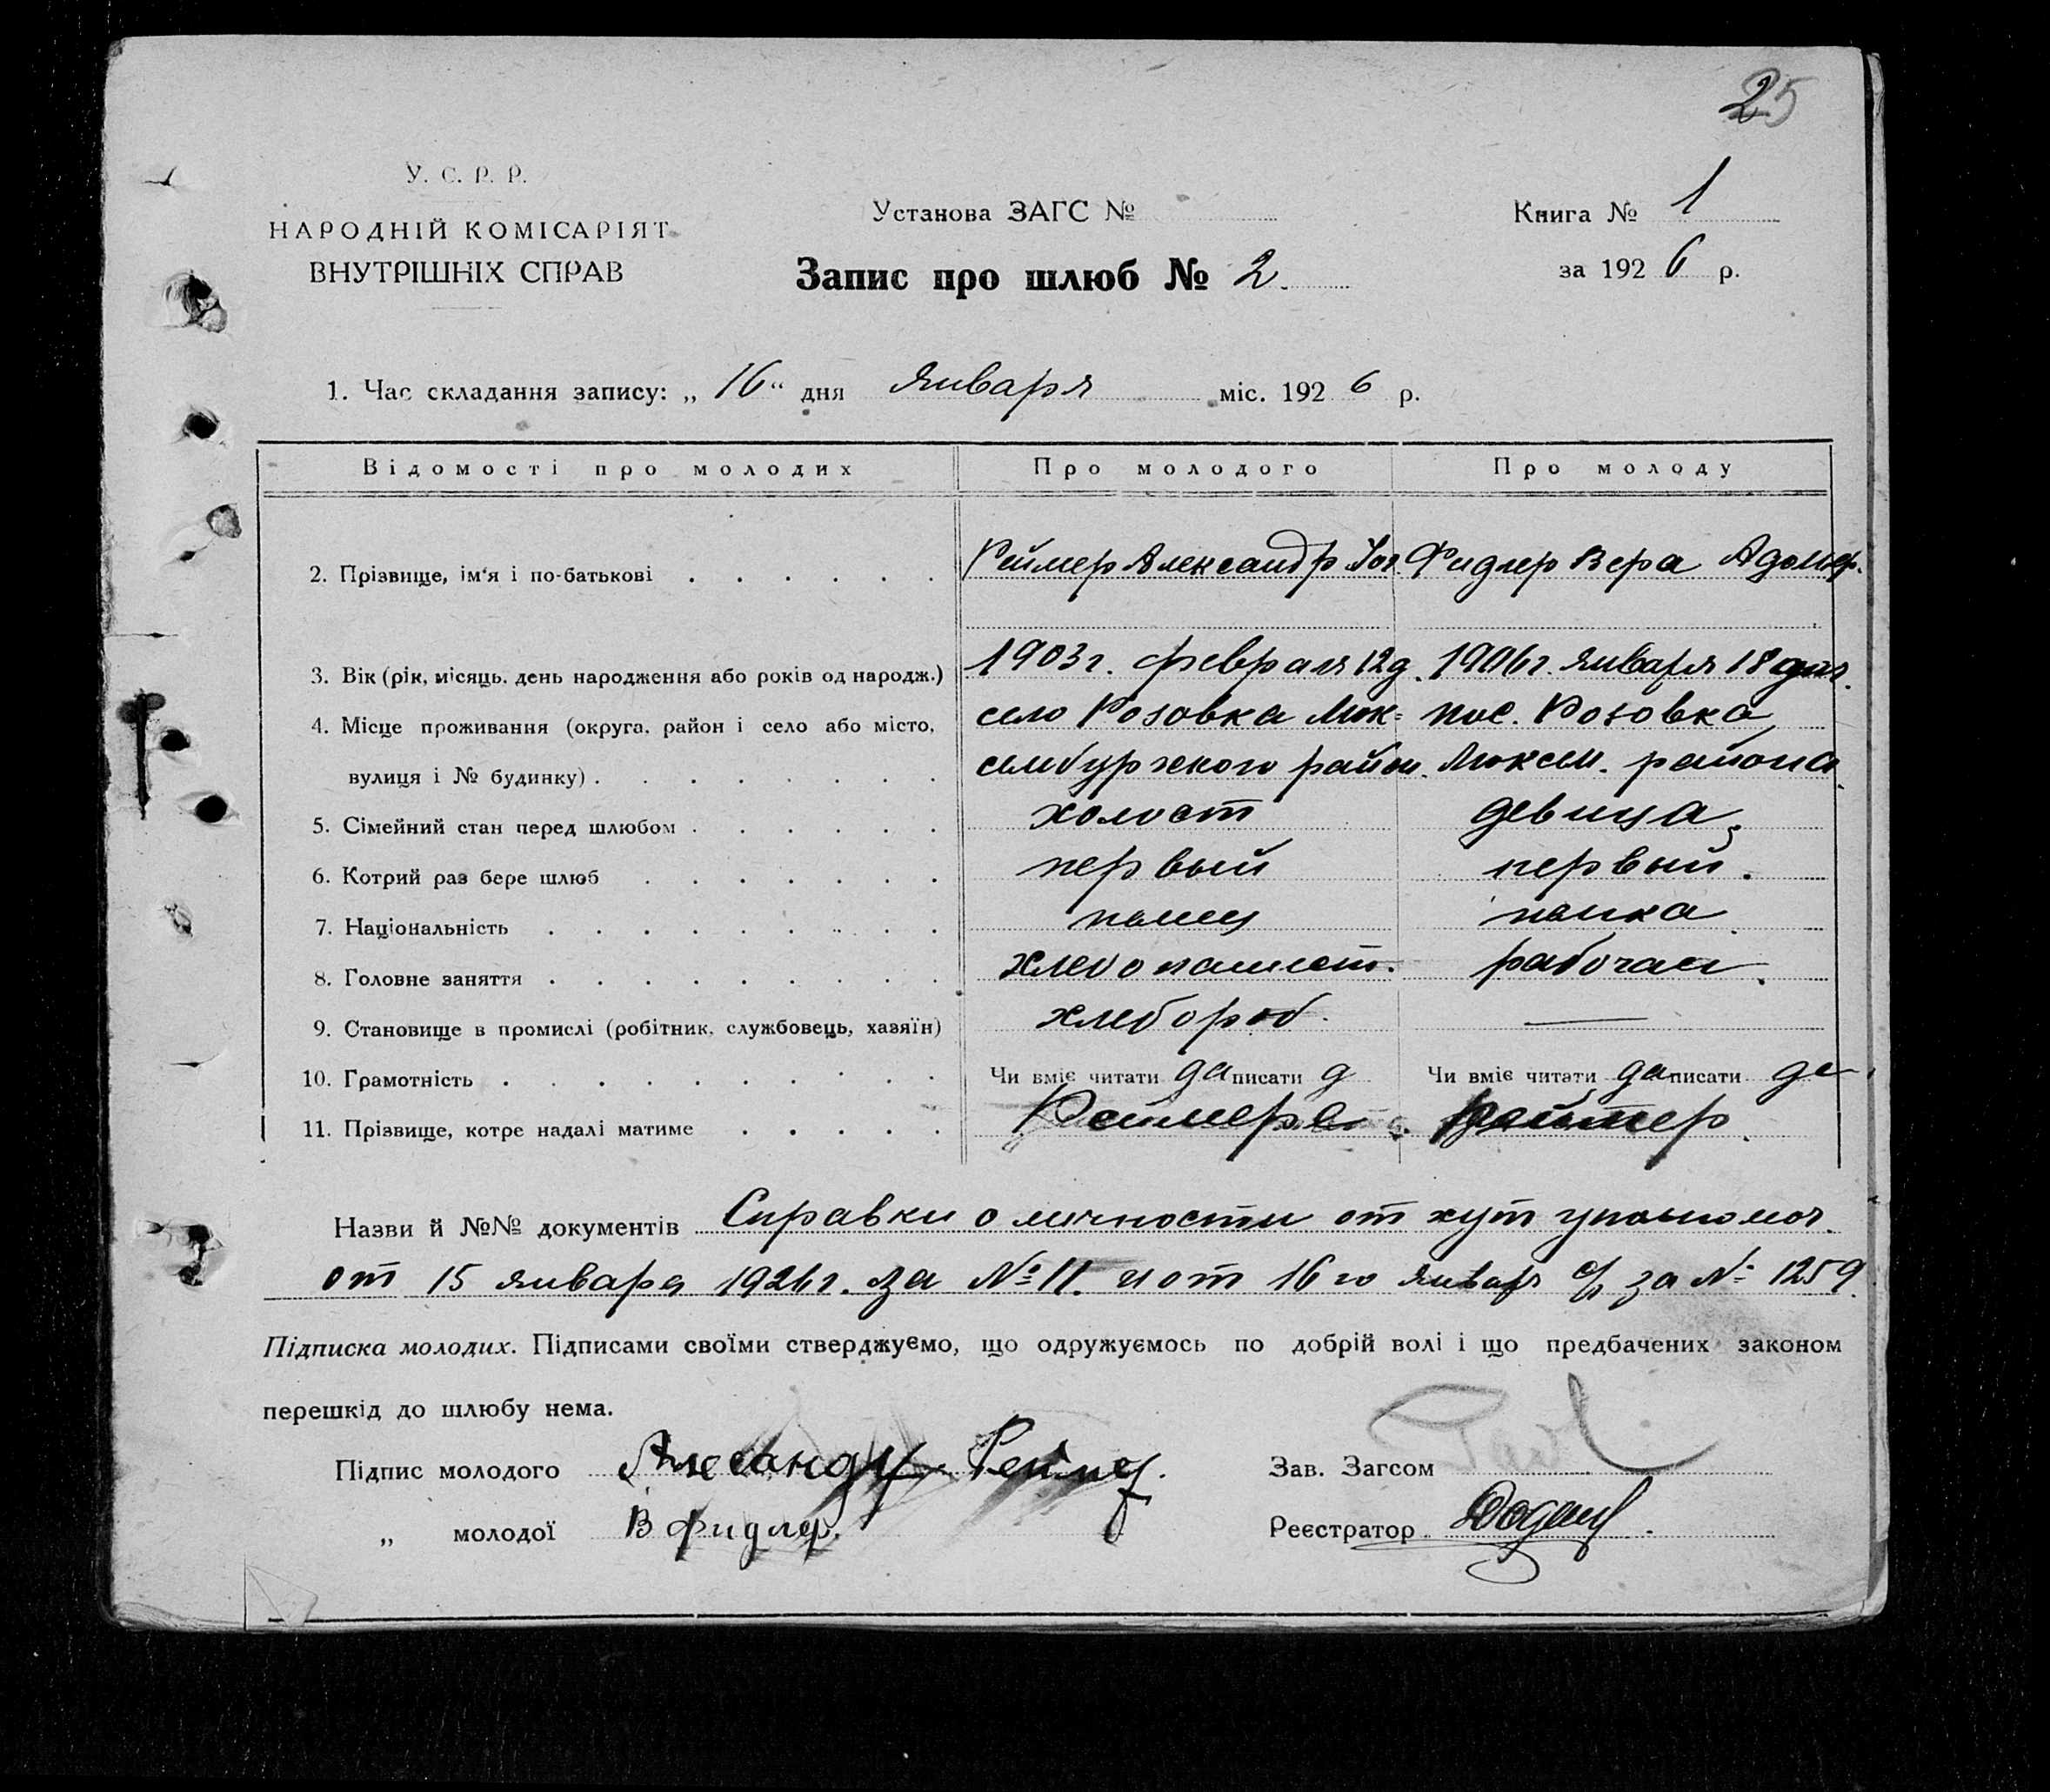 25
У. С. Р. Р.
НАРОДНІЙ КОМІСАРІЯТ
ВНУТРІШНІХ СПРАВ
Установа ЗАГС №
Запис про шлюб № 2.
Книга № 1
за 1926 р.
1. Час складання запису: „ 16 “ дня января міс. 1926 р.
Відомості про молодих Про молодого Про молоду
2. Прізвище, ім'я і по-батькові Реймер Александр Фидлер Вера Адольф.
3. Вік (рік, місяць, день народження або років од народж.) 1903 г. февраля 12 д. 1906 г. января 18 дня.
4. Місце проживання (округа, район і село або місто, село Розовка Люк= пос. Розовка
вулиця і № будинку) сембургского район. Люксем. района
5. Сімейний стан перед шлюбом холост девица
6. Котрий раз бере шлюб первый первый.
7. Національність немец немка
8. Головне заняття хлебопашест. рабочая.
9. Становище в промислі (робітник, службовець, хазяїн) хлебороб. —
10. Грамотність Чи вміє читати да писати д Чи вміє читати да писати да
11. Прізвище, котре надалі матиме Реймер Реймер.
Назви й №№ документів Справки о личности от хут уполномоч.
от 15 января 1926 г. за № 11. и от 16 го января с/р за № 1259.
Підписка молодих. Підписами своїми стверджуємо, що одружуємось по добрій волі і що предбачених законом
перешкід до шлюбу нема.
Підпис молодого Александр Реймер.
Зав. Загсом
„ молодої В Фидлер.
Реєстратор